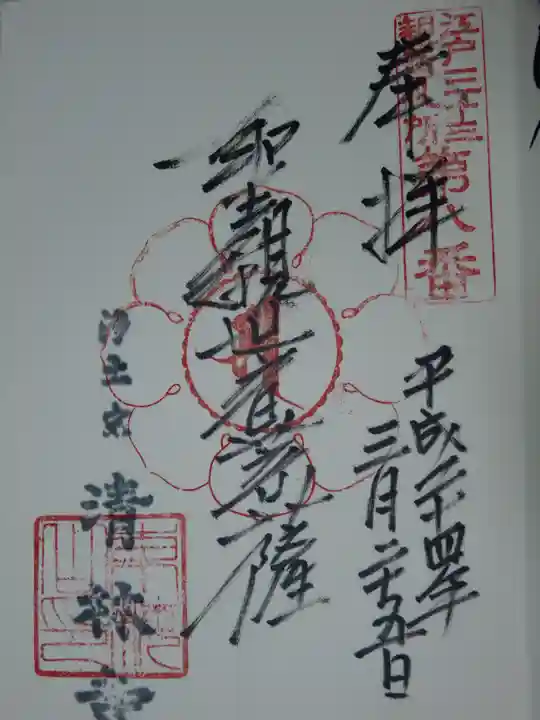 江戸三十三
観音札所第八番
奉拝
平成二十四年
三月二十五日
聖観世音菩薩
浄土宗
清林寺